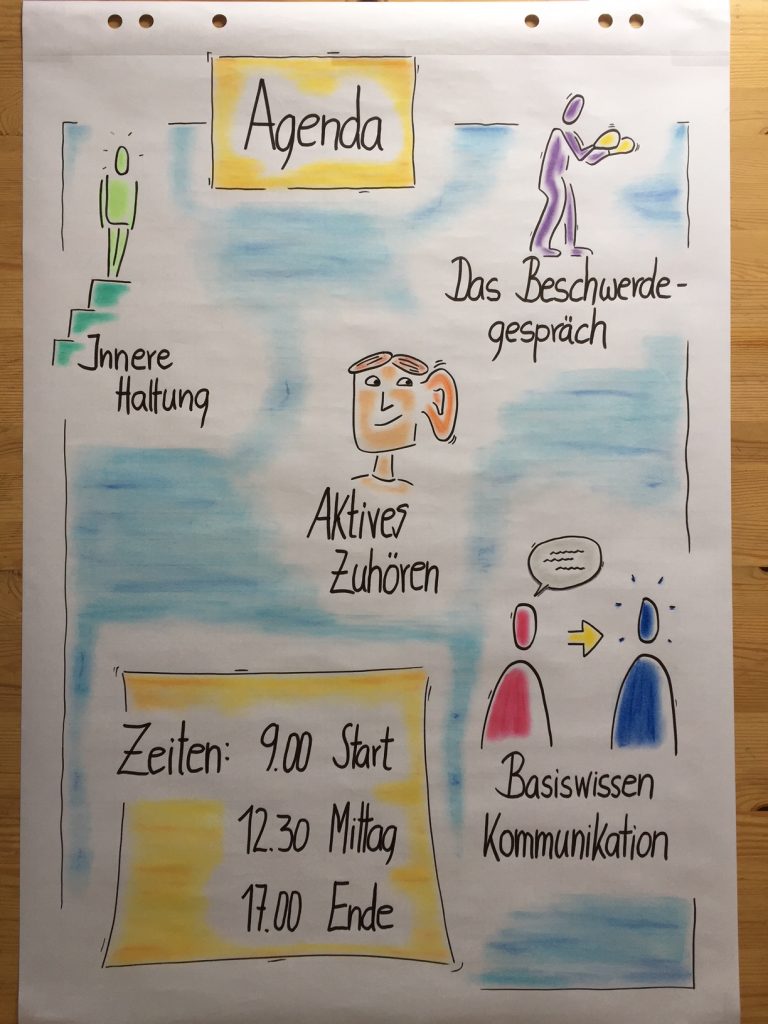 Agenda
Das Beschwerde-
gespräch
Innere
Haltung
Aktives
Zuhören
Basiswissen
Kommunikation
Zeiten: 9.00 Start
12.30 Mittag
17.00 Ende